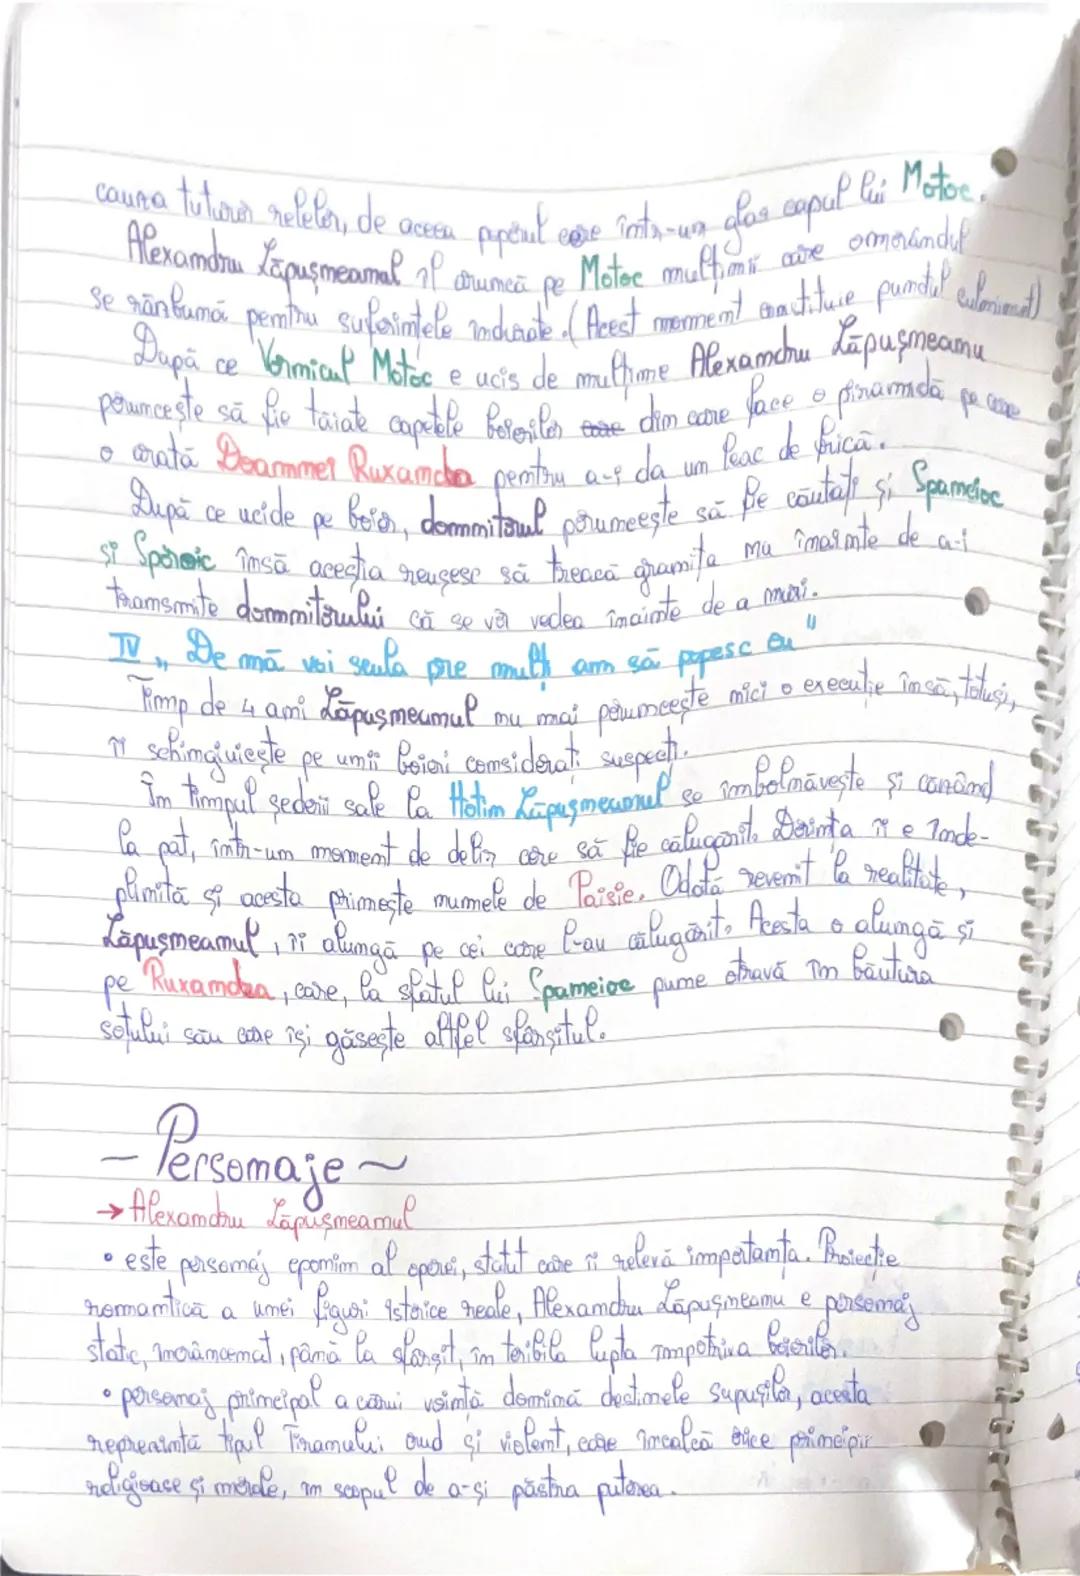 cauza tuturor relelor, de aceea poporul cere într-un glas capul lui Motoc.
Alexandru Lăpușneanul îl aruncă pe Motoc mulțimii care omorându-l
se răzbună pentru suferințele îndurate. (Acest moment constituie punctul culminant)
După ce Vornicul Motoc e ucis de mulțime Alexandru Lăpușneanu
poruncește să fie tăiate capetele boierilor din care face o piramidă pe care
o arată Doamnei Ruxandra pentru a-i da un leac de frică.
După ce ucide pe boieri, domnitorul poruncește să fie căutați și Spancioc
și Stroici însă aceștia reușesc să treacă granița nu înainte de a-i
transmite domnitorului că se vor vedea înainte de a muri.
IV „De mă voi scula pre mulți am să popesc eu"
Timp de 4 ani Lăpușneanul nu mai poruncește nici o execuție însă, totuși,
îi schingiuiește pe unii boieri considerați suspecți.
În timpul șederii sale la Hotin Lăpușneanul se îmbolnăvește și căzând
la pat, într-un moment de delir cere să fie călugărit. Dorința îi e înde-
plinită și acesta primește numele de Paisie. Odată revenit la realitate,
Lăpușneanul, îi alungă pe cei care l-au călugărit. Acesta o alungă și
pe Ruxandra, care, la sfatul lui Spancioc pune otravă în băutura
soțului său care își găsește altfel sfârșitul.
- Personaje ~
→ Alexandru Lăpușneanul
• este personaj eponim al operei, statut care îi relevă importanța. Proiecție
romantică a unei figuri istorice reale, Alexandru Lăpușneanu e personaj
static, încrâncenat, până la sfârșit, în teribila luptă împotriva boierilor.
• personaj principal a cărui voință domină destinele supușilor, acesta
reprezintă tipul Tiranului crud și violent, care încalcă orice principii
religioase și morale, în scopul de a-și păstra puterea.